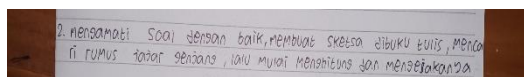 2. mengamati soal dengan baik, membuat sketsa dibuku tulis, menca
ri rumus jajar genjang, lalu mulai menghitung dan mengejakannya